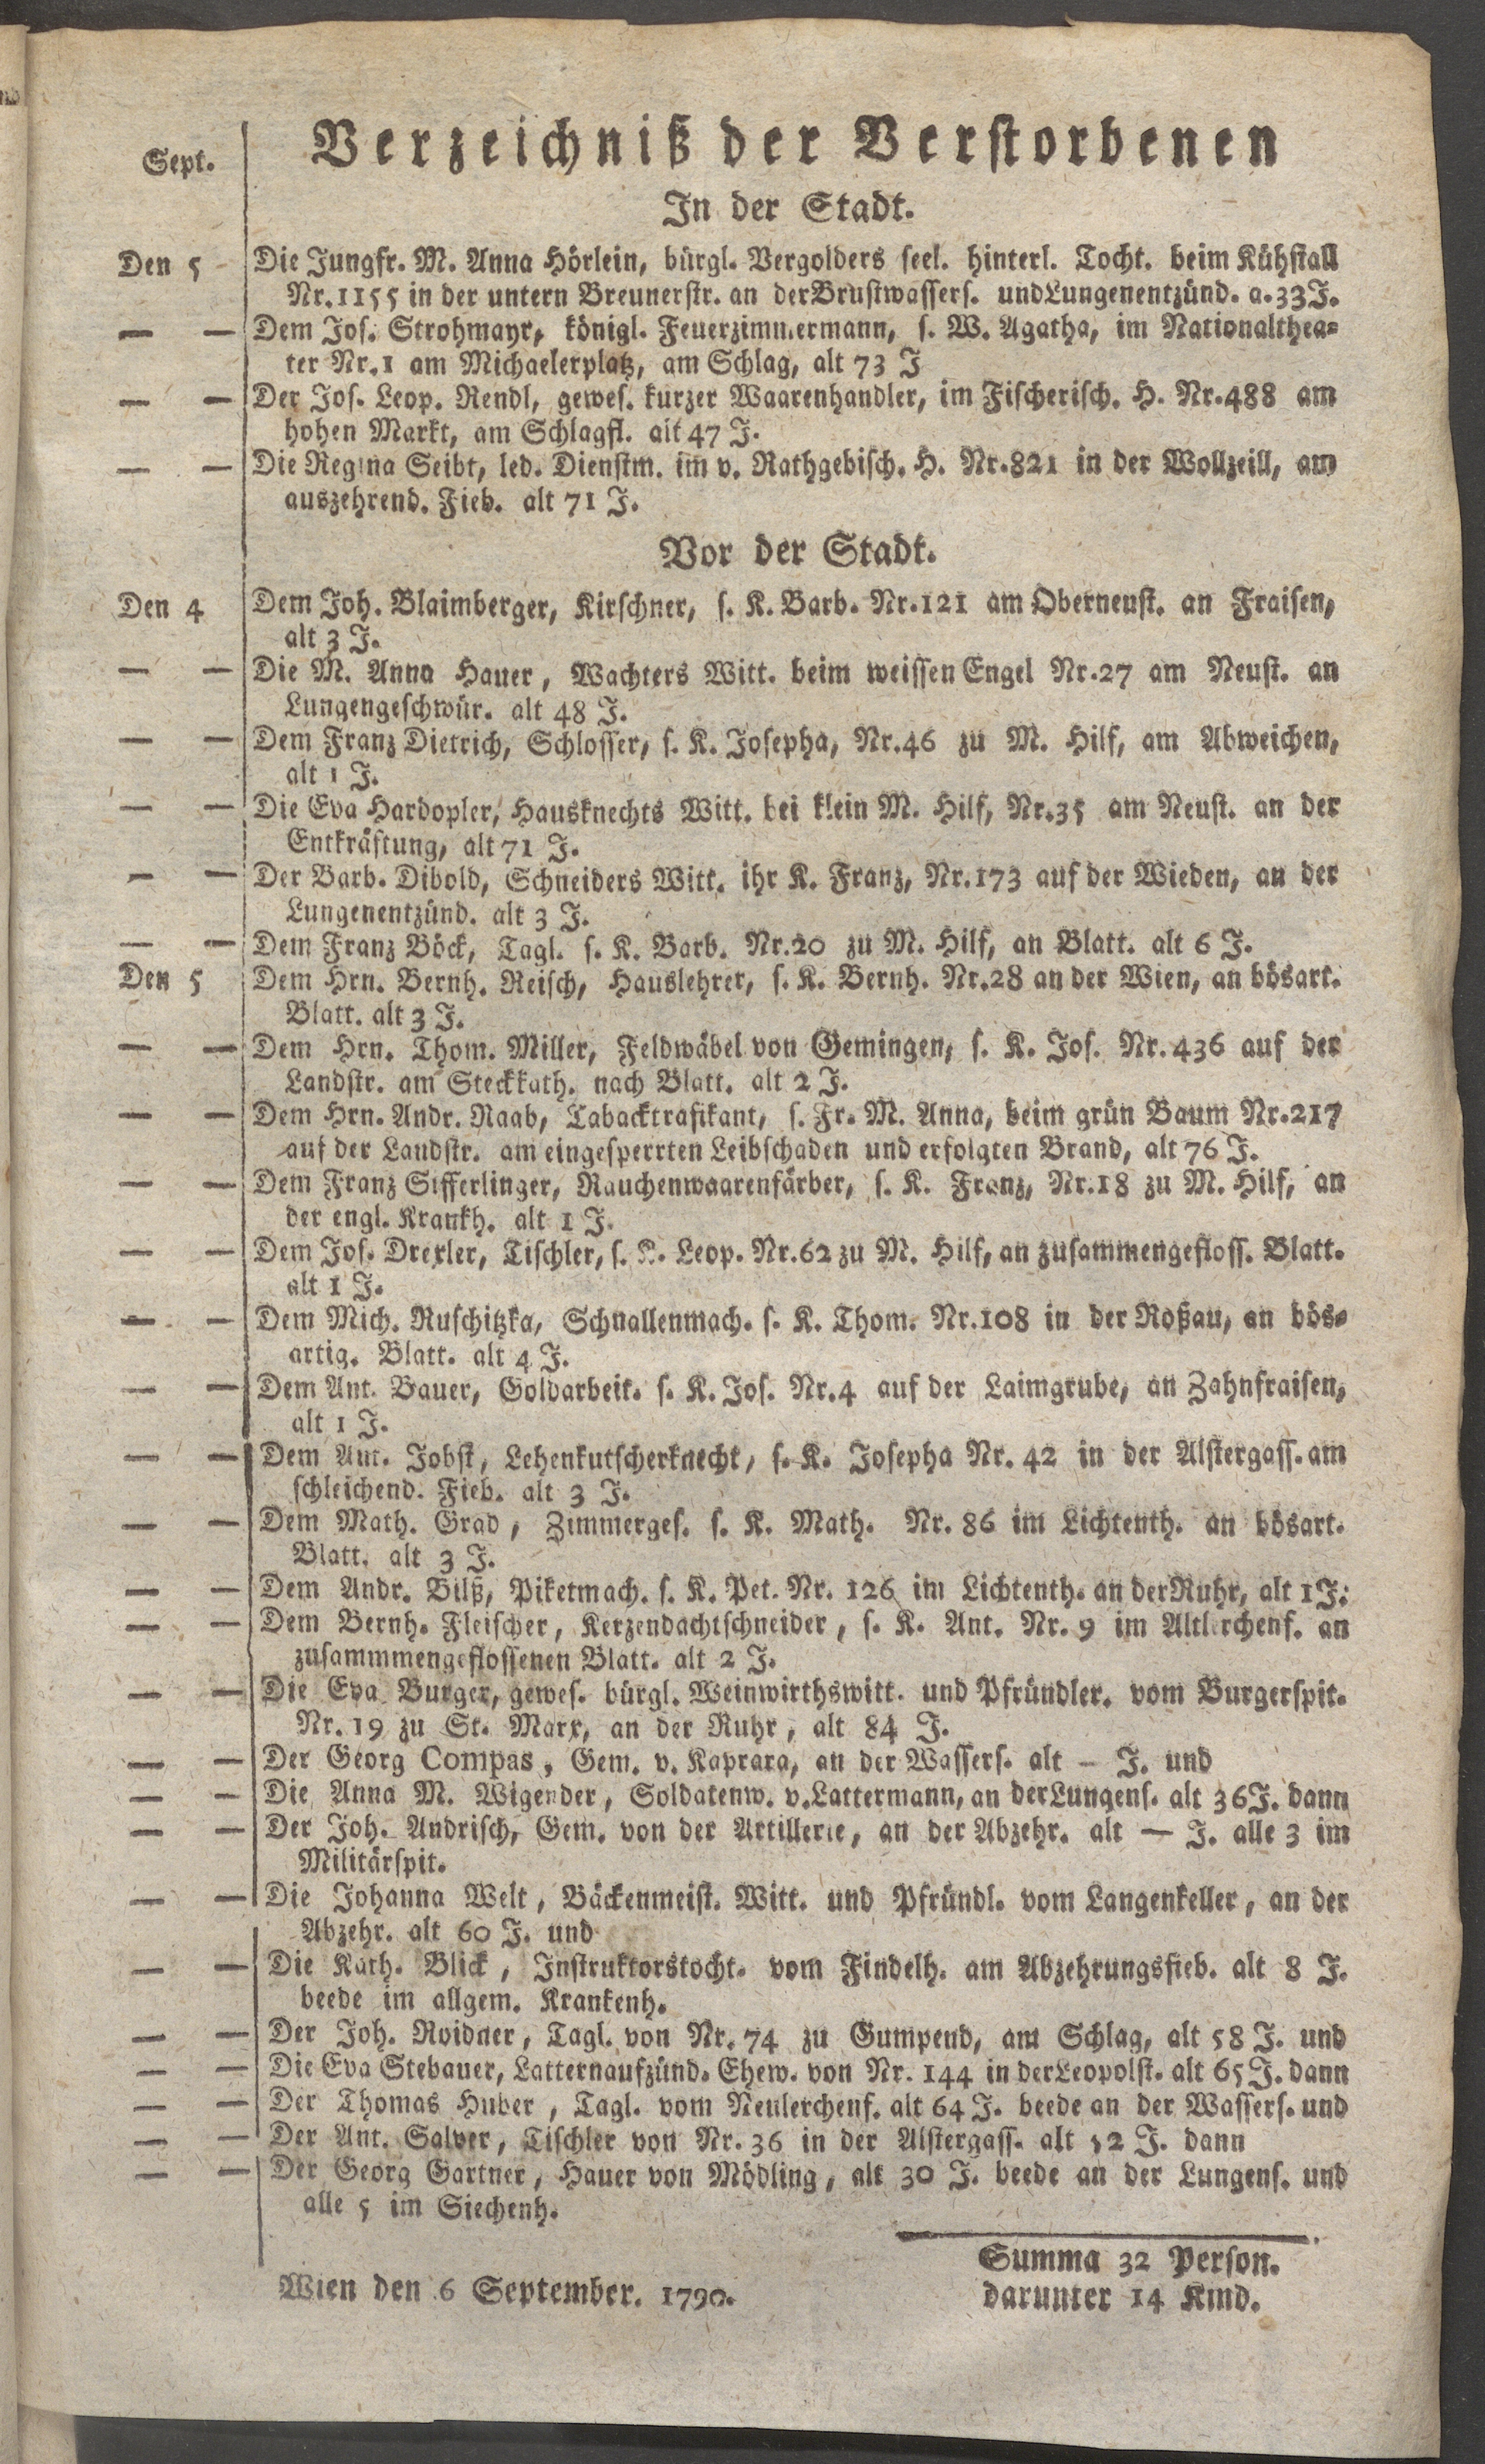 Sept.
Verzeichniß der Verstorbenen
In der Stadt.
Den 5 Die Jungfr. M. Anna Hörlein, bürgl. Vergolders seel. hinterl. Tocht. beim Kühstall
Nr. 1155 in der untern Breunerstr. an der Brustwassers. und Lungenentzünd. a. 33 J.
— — Dem Jos. Strohmayr, königl. Feuerzimmermann, s. W. Agatha, im Nationalthea=
ter Nr. 1 am Michaelerplatz, am Schlag, alt 73 J
— — Der Jos. Leop. Rendl, gewes. kurzer Waarenhandler, im Fischerisch. H. Nr. 488 am
hohen Markt, am Schlagfl. alt 47 J.
— — Die Regina Seibt, led. Dienstm. im v. Rathgebisch. H. Nr. 821 in der Wollzeill, am
auszehrend. Fieb. alt 71 J.
Vor der Stadt.
Den 4 Dem Joh. Blaimberger, Kirschner, s. K. Barb. Nr. 121 am Oberneust. an Fraisen,
alt 3 J.
— — Die M. Anna Hauer, Wachters Witt. beim weissen Engel Nr. 27 am Neust. an
Lungengeschwür. alt 48 J.
— — Dem Franz Dietrich, Schlosser, s. K. Josepha, Nr. 46 zu M. Hilf, am Abweichen,
alt 1 J.
— — Die Eva Hardopler, Hausknechts Witt. bei klein M. Hilf, Nr. 35 am Neust. an der
Entkräftung, alt 71 J.
— — Der Barb. Dibold, Schneiders Witt. ihr K. Franz, Nr. 173 auf der Wieden, an der
Lungenentzünd. alt 3 J.
— — Dem Franz Böck, Tagl. s. K. Barb. Nr. 20 zu M. Hilf, an Blatt. alt 6 J.
Den 5 Dem Hrn. Bernh. Reisch, Hauslehrer, s. K. Bernh. Nr. 28 an der Wien, an bösart.
Blatt. alt 3 J.
— — Dem Hrn. Thom. Miller, Feldwäbel von Gemingen, s. K. Jos. Nr. 436 auf der
Landstr. am Steckkath. nach Blatt. alt 2 J.
— — Dem Hrn. Andr. Raab, Tabacktrafikant, s. Fr. M. Anna, beim grün Baum Nr. 217
auf der Landstr. am eingesperrten Leibschaden und erfolgten Brand, alt 76 J.
— — Dem Franz Sifferlinger, Rauchenwaarenfärber, s. K. Franz, Nr. 18 zu M. Hilf, an
der engl. Krankh. alt 1 J.
— — Dem Jos. Drexler, Tischler, s. K. Leop. Nr. 62 zu M. Hilf, an zusammengefloss. Blatt.
alt 1 J.
— — Dem Mich. Ruschitzka, Schnallenmach. s. K. Thom. Nr. 108 in der Roßau, an bös=
artig. Blatt. alt 4 J.
— — Dem Ant. Bauer, Goldarbeit. s. K. Jos. Nr. 4 auf der Laimgrube, an Zahnfraisen,
alt 1 J.
— — Dem Ant. Jobst, Lehenkutscherknecht, s. K. Josepha Nr. 42 in der Alstergass. am
schleichend. Fieb. alt 3 J.
— — Dem Math. Grad, Zimmerges. s. K. Math. Nr. 86 im Lichtenth. an bösart.
Blatt. alt 3 J.
— — Dem Andr. Bilß, Piketmach. s. K. Pet. Nr. 126 im Lichtenth. an der Ruhr, alt 1 J.
— — Dem Bernh. Fleischer, Kerzendachtschneider, s. K. Ant. Nr. 9 im Altlerchenf. an
zusammmengeflossenen Blatt. alt 2 J.
— — Die Eva Burger, gewes. bürgl. Weinwirthswitt. und Pfründler. vom Burgerspit.
Nr. 19 zu St. Marx, an der Ruhr, alt 84 J.
— — Der Georg Compas, Gem. v. Kaprara, an der Wassers. alt — J. und
— — Die Anna M. Wigender, Soldatenw. v. Lattermann, an der Lungens. alt 36 J. dann
— — Der Joh. Andrisch, Gem. von der Artillerie, an der Abzehr. alt — J. alle 3 im
Militärspit.
— — Die Johanna Welt, Bäckenmeist. Witt. und Pfründl. vom Langenkeller, an der
Abzehr. alt 60 J. und
— — Die Kath. Blick, Instruktorstocht. vom Findelh. am Abzehrungsfieb. alt 8 J.
beede im allgem. Krankenh.
— — Der Joh. Roidner, Tagl. von Nr. 74 zu Gumpend, am Schlag, alt 58 J. und
— — Die Eva Stebauer, Latternaufzünd. Ehew. von Nr. 144 in der Leopolst. alt 65 J. dann
— — Der Thomas Huber, Tagl. vom Neulerchenf. alt 64 J. beede an der Wassers. und
— — Der Ant. Salver, Tischler von Nr. 36 in der Alstergass. alt 52 J. dann
— — Der Georg Gartner, Hauer von Mödling, alt 30 J. beede an der Lungens. und
alle 5 im Siechenh.
Summa 32 Person.
Wien den 6 September. 1790.
darunter 14 Kind.